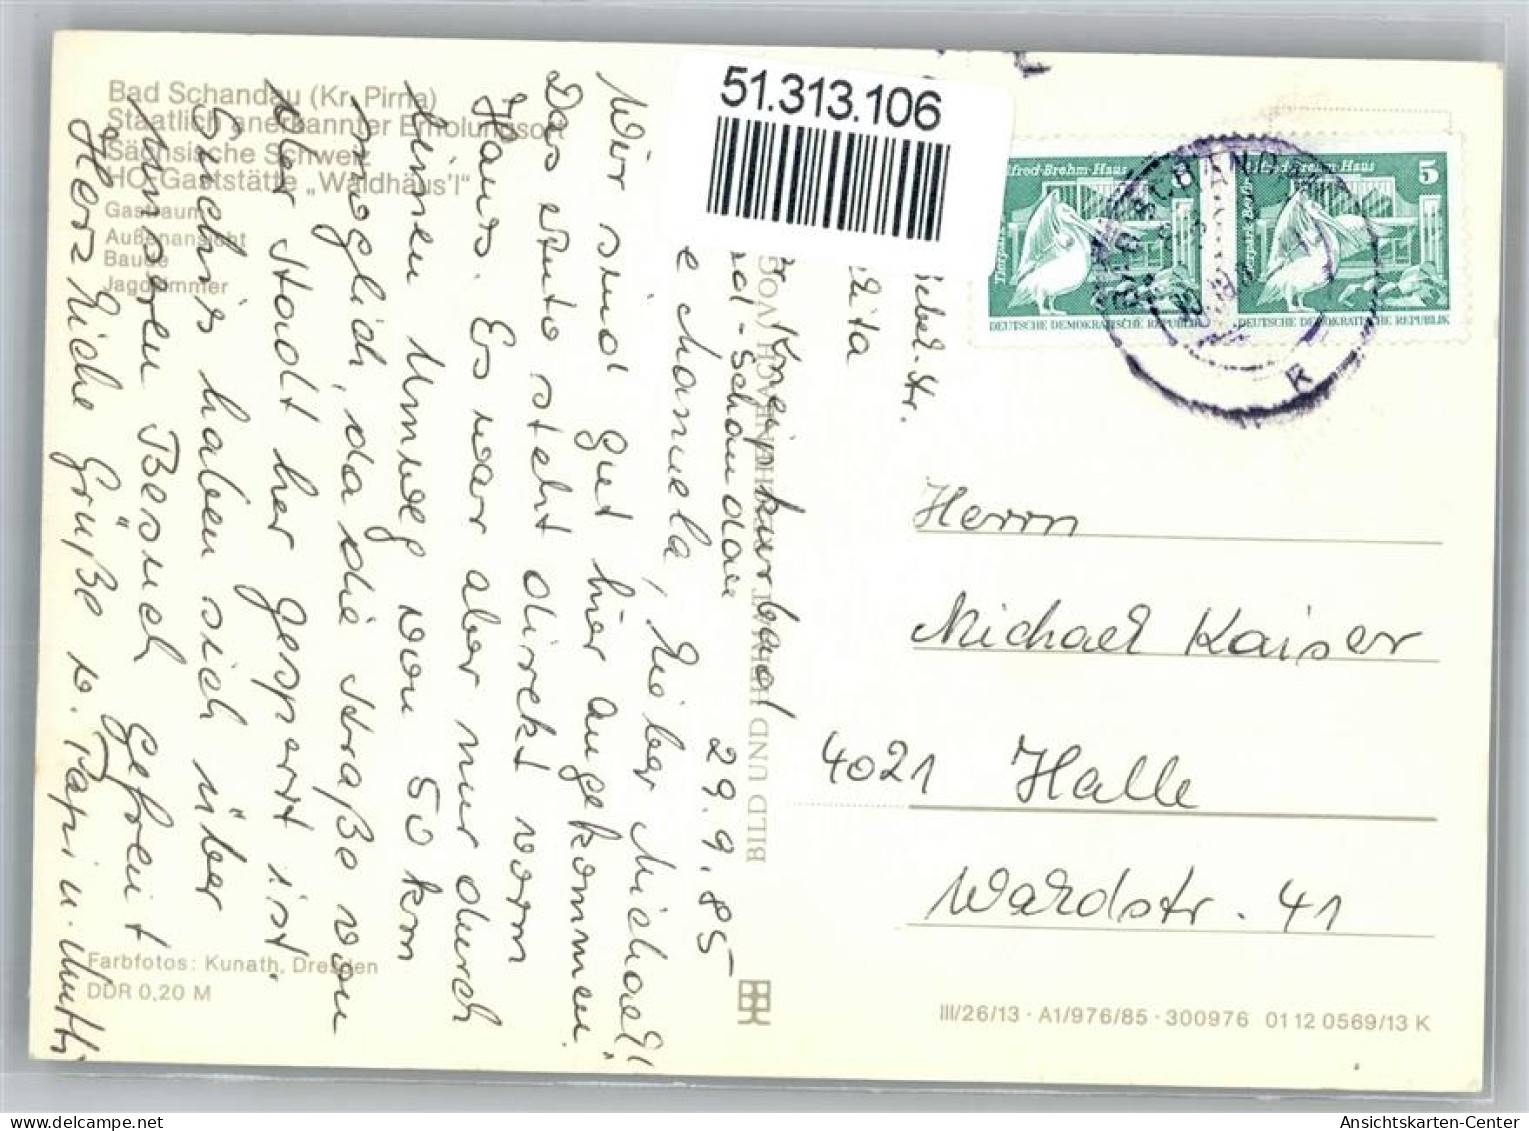 Bad Schandau (Kr. Pirna)
Staatlich anerkannter Erholungsort
Sächsische Schweiz
HO-Gaststätte „Waldhäus'l"
Gastraum
Außenansicht
Baude
Jagdzimmer
51.313.106
Alfred-Brehm-Haus
Tierpark Berlin
DEUTSCHE DEMOKRATISCHE REPUBLIK
Alfred-Brehm-Haus
5
Tierpark Berlin
DEUTSCHE DEMOKRATISCHE REPUBLIK
BAD SCHANDAU
k
ebel. Str.
Kneippkurbad
Bad-Schandau
29.9.85
e Manuela, lieber Michael!
Wir sind gut hier angekommen.
Das Auto steht direkt vorm
Haus. Es war aber nur durch
einen Umweg von 50 km
möglich, da die Straße von
der Stadt her gesperrt ist.
Guedis haben sich über
unseren Besuch gefreut
Herzliche Grüße v. Papi u. Mutti
Herrn
Michael Kaiser
4021 Halle
Waldstr. 41
BILD UND HEIMAT REICHENBACH (VOGTL)
Farbfotos: Kunath, Dresden
DDR 0,20 M
III/26/13 · A1/976/85 · 300976 01 12 0569/13 K
Ansichtskarten-Center